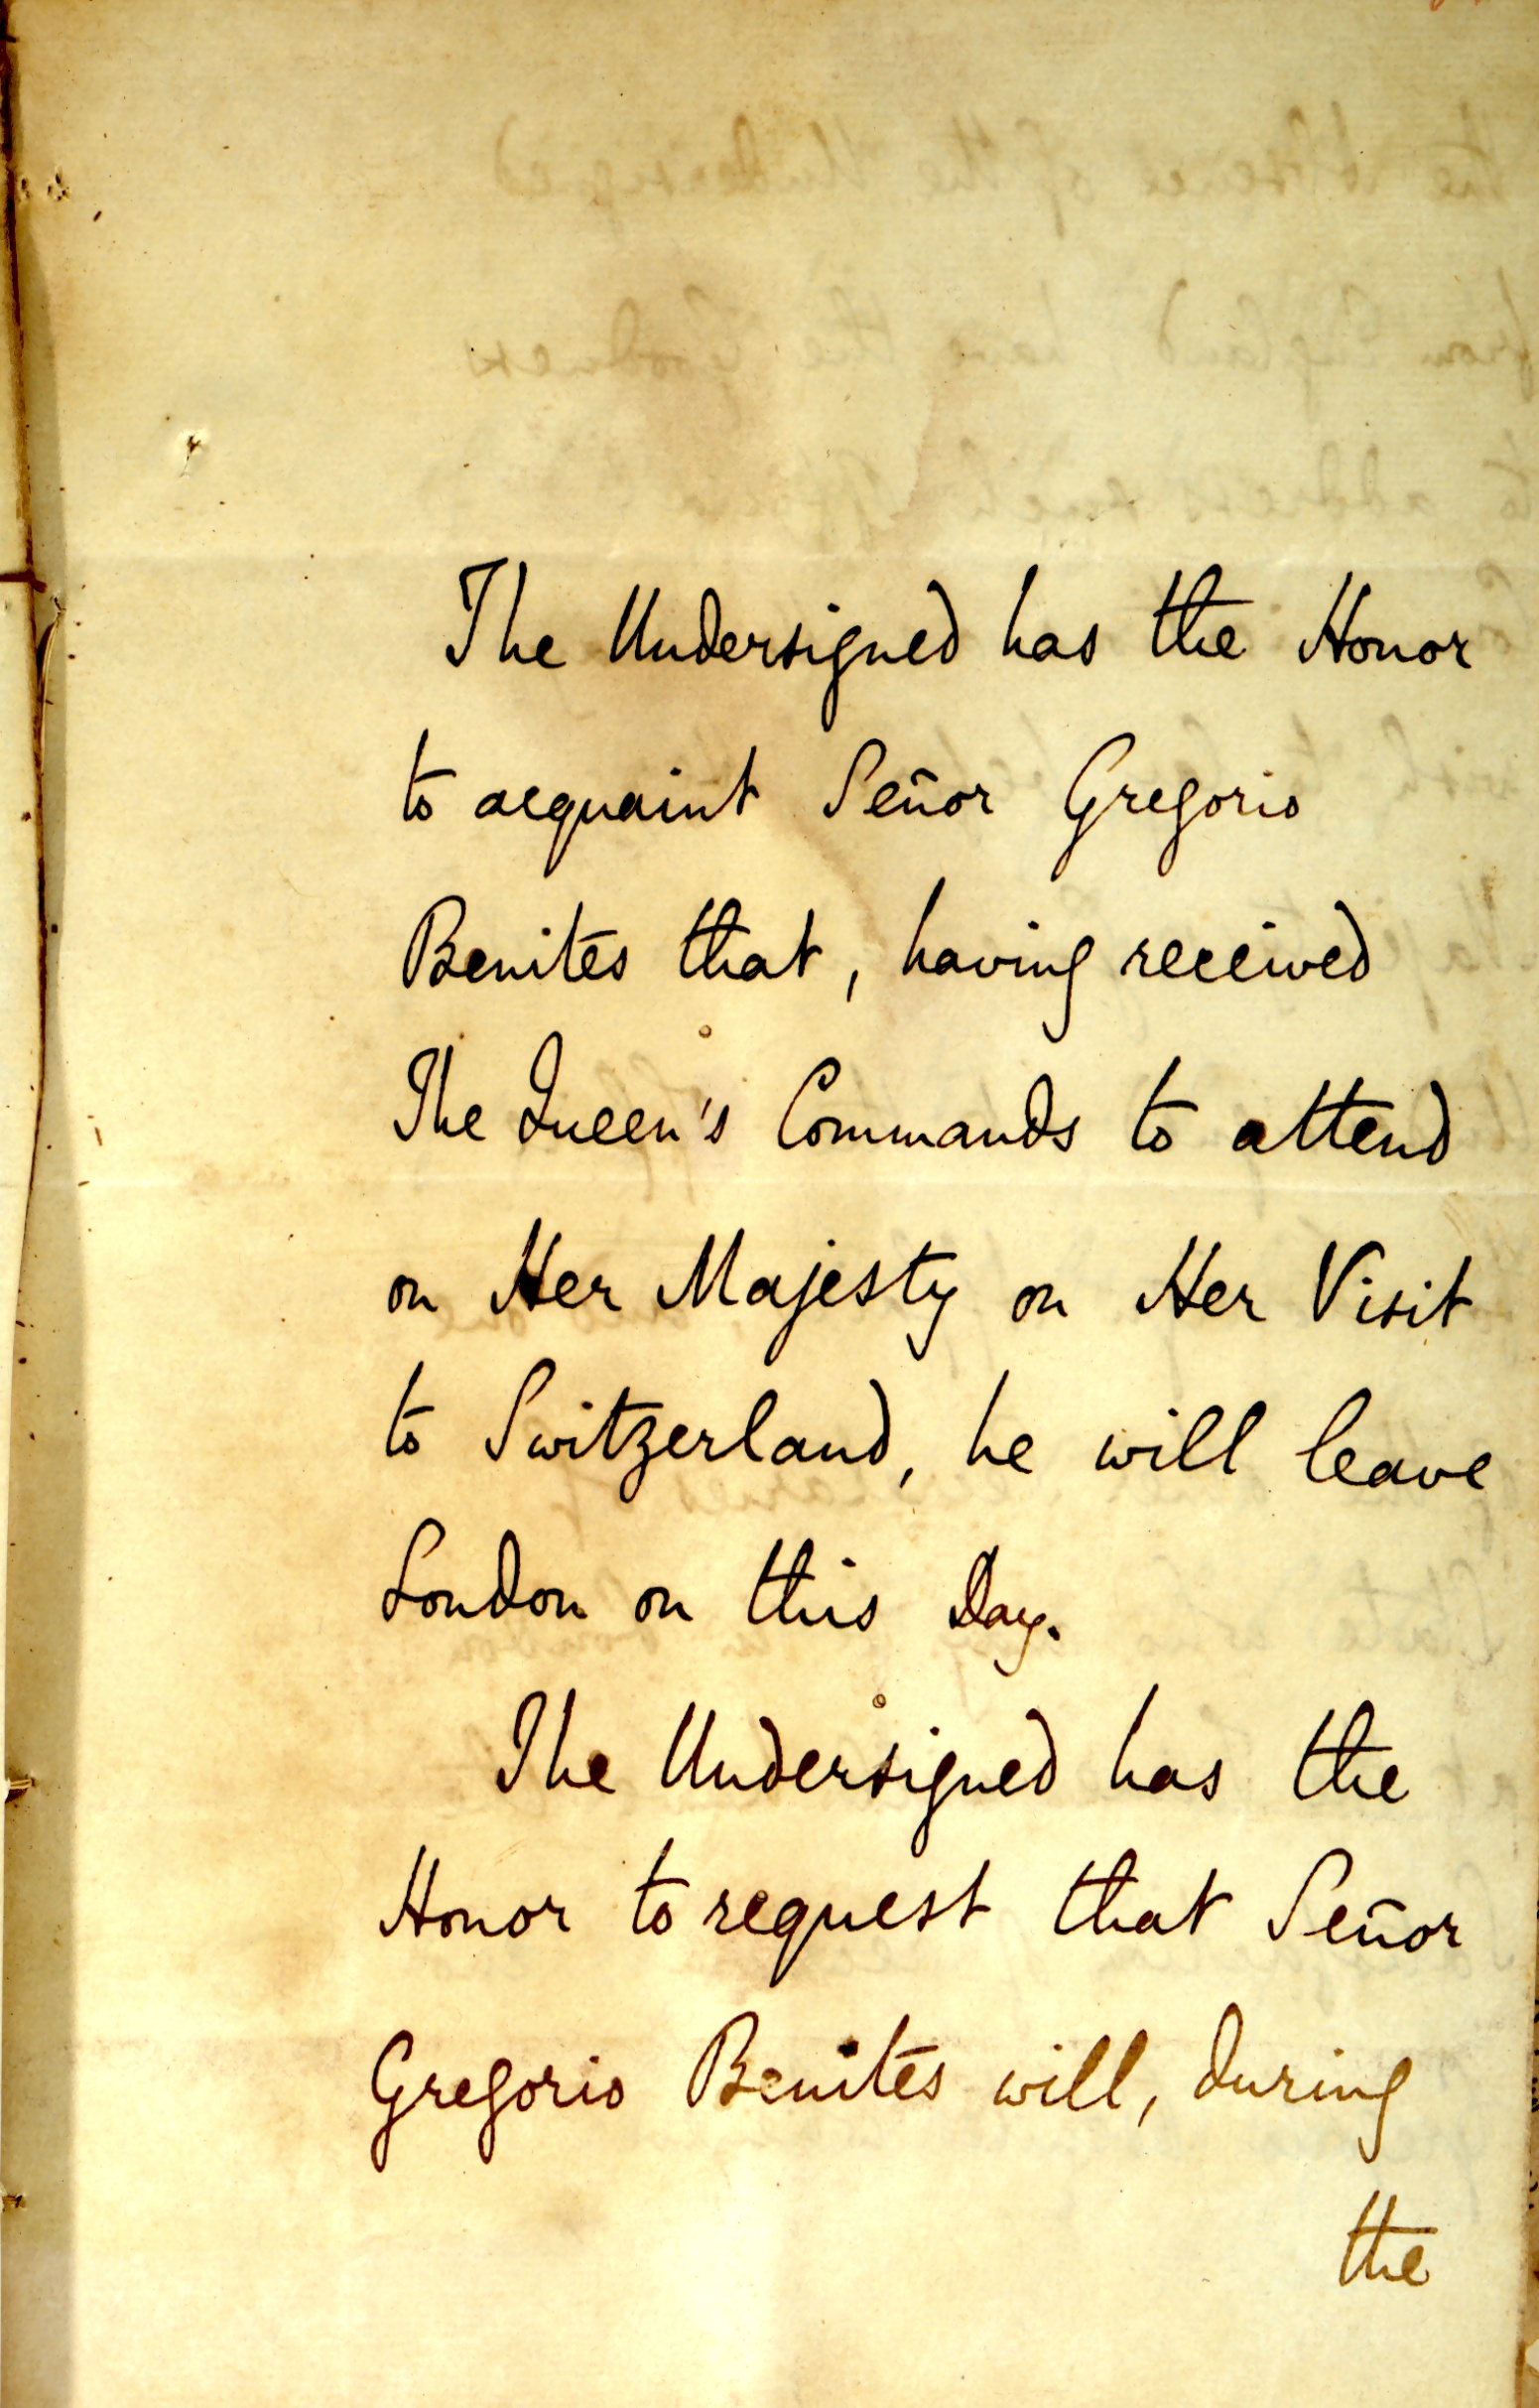 The Undersigned has the Honor
to acquaint Señor Gregorio
Benites that, having received
The Queen's Commands to attend
on Her Majesty on Her Visit
to Switzerland, he will leave
London on this Day.
The Undersigned has the
Honor to request that Señor
Gregorio Benites will, during
the